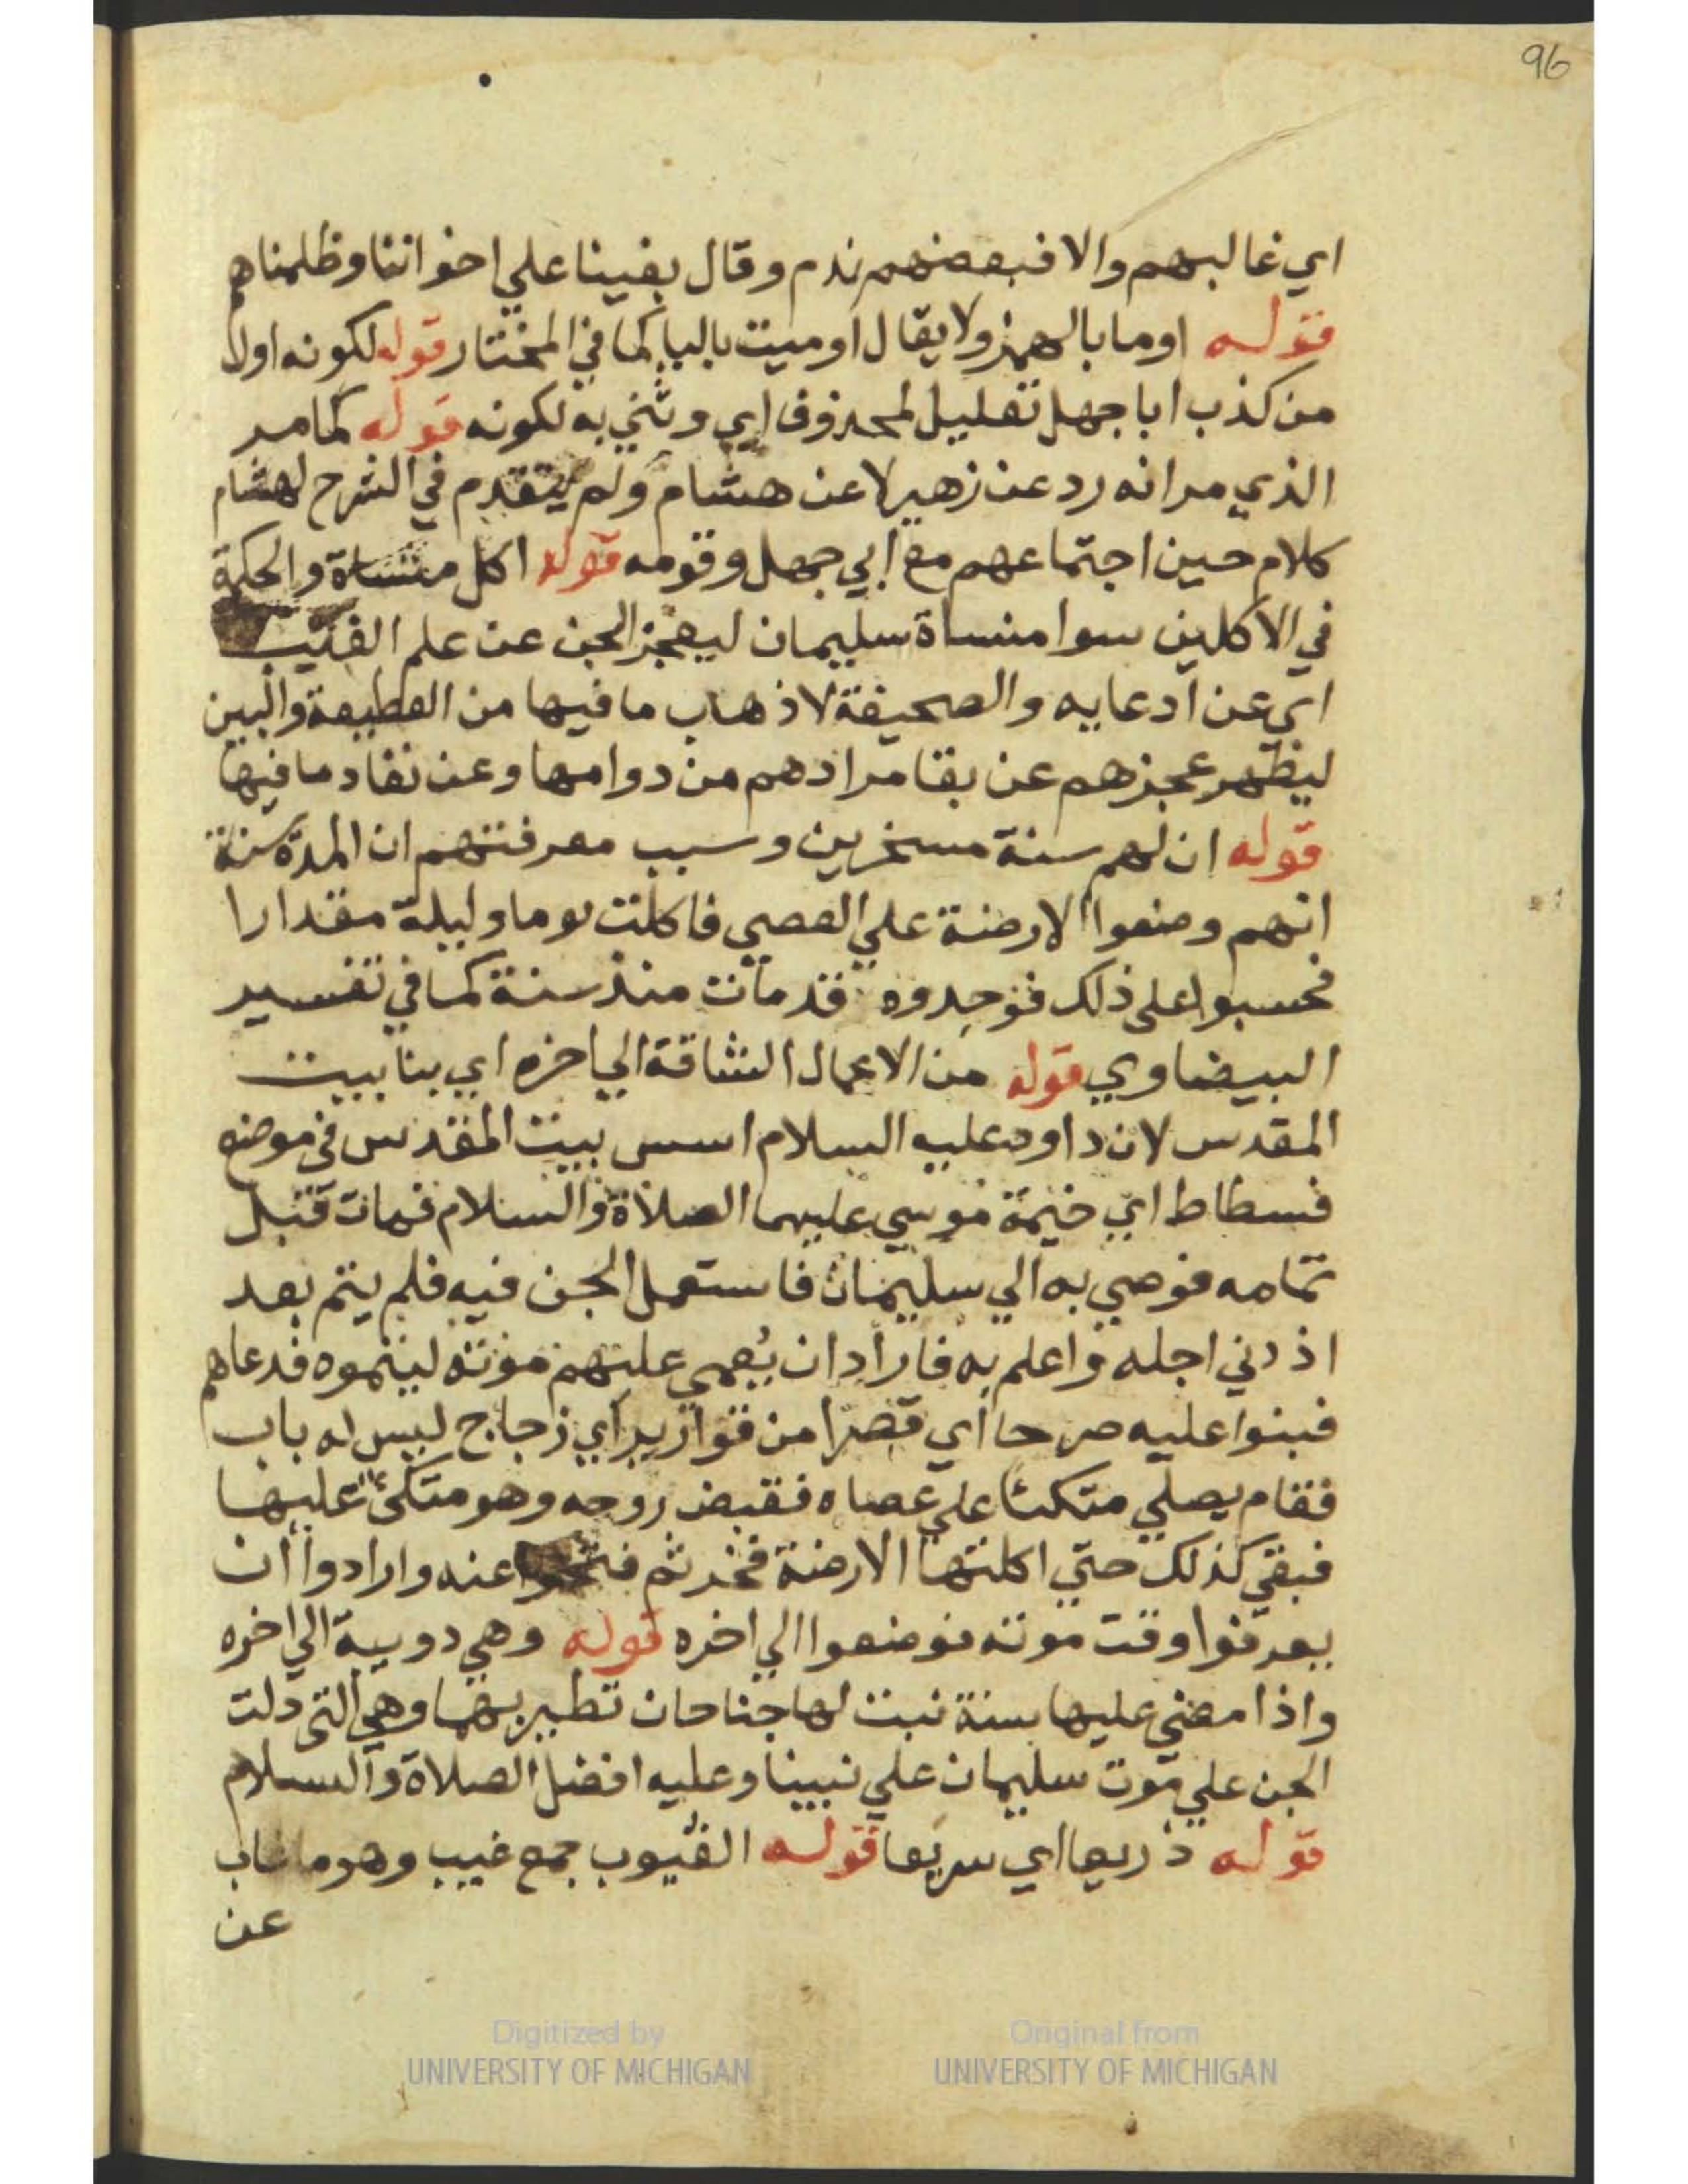 96
اي غالبهم والا فبعضهم ندم وقال بغينا علي اخواننا وظلمناهم
قوله اوما بالهمز ولا يقال اوميت باليا كما في المختار قوله لكونه اول
من كذب ابا جهل تعليل لمحذوف اي وثني به لكونه قوله كما مر
الذي مر انه رد عن زهير لا عن هشام ولم يتقدم في الشرح لهشام
كلام حين اجتماعهم مع ابي جهل وقومه قوله اكل منساة والحكمة
في الاكلين سوا منساة سليمان ليعجز الجن عن علم الغيب
اي عن ادعايه والصحيفة لاذهاب ما فيها من القطيعة والبين
ليظهر عجزهم عن بقا مرادهم من دوامها وعن نفاد ما فيها
قوله ان لهم سنة مسخرين وسبب معرفتهم ان المدة سنة
انهم وضعوا الارضة علي العصي فاكلت يوما وليلة مقدارا
فحسبوا علي ذلك فوجدوه قد مات منذ سنة كما في تفسير
البيضاوي قوله من الاعمال الشاقة الي اخره اي بنا بيت
المقدس لان داود عليه السلام اسس بيت المقدس في موضع
فسطاط اي خيمة موسي عليهما الصلاة والسلام فمات قبل
تمامه فوصي به الي سليمان فاستعمل الجن فيه فلم يتم بعد
اذ دني اجله واعلم به فاراد ان يُعمي عليهم موته ليتموه فدعاهم
فبنوا عليه صرحا اي قصرا من قوارير اي زجاج ليس له باب
فقام يصلي متكئا علي عصاه فقبض روحه وهو متكئ عليها
فبقي كذلك حتي اكلتها الارضة فخر ثم فتحوا عنه وارادوا ان
يعرفوا وقت موته فوضعوا الي اخره قوله وهي دويبة الي اخره
واذا مضي عليها سنة نبت لها جناحان تطير بهما وهي التي دلت
الجن علي موت سليمان علي نبينا وعليه افضل الصلاة والسلام
قوله ذريعا اي سريعا قوله الغيوب جمع غيب وهو ما غاب
عن
Digitized by
UNIVERSITY OF MICHIGAN
Original from
UNIVERSITY OF MICHIGAN